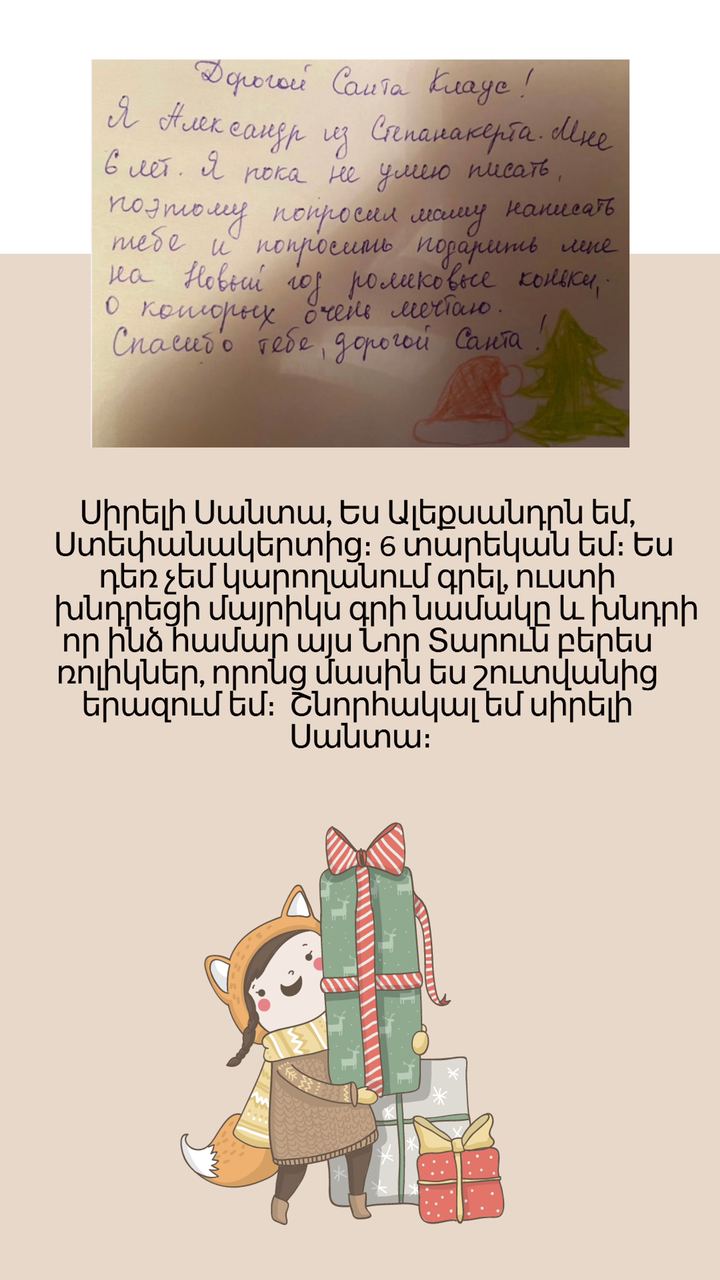 Дорогой Санта Клаус!
Я Александр из Степанакерта. Мне
6 лет. Я пока не умею писать,
поэтому попросил маму написать
тебе и попросить подарить мне
на Новый год роликовые коньки,
о которых очень мечтаю.
Спасибо тебе, дорогой Санта!
Սիրելի Սանտա, Ես Ալեքսանդրն եմ,
Ստեփանակերտից։ 6 տարեկան եմ։ Ես
դեռ չեմ կարողանում գրել, ուստի
խնդրեցի մայրիկս գրի նամակը և խնդրի
որ ինձ համար այս Նոր Տարուն բերես
ռոլիկներ, որոնց մասին ես շուտվանից
երազում եմ։ Շնորհակալ եմ սիրելի
Սանտա։